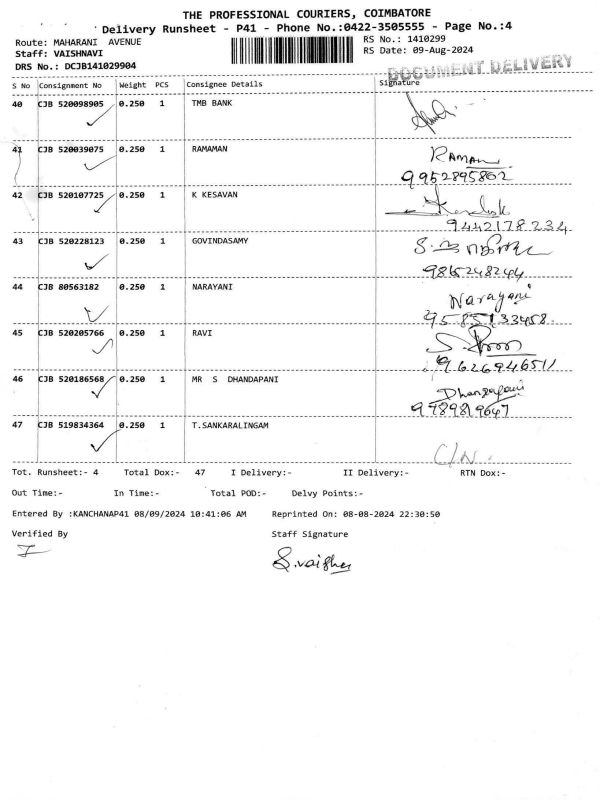 THE PROFESSIONAL COURIERS, COIMBATORE
Delivery Runsheet - P41 - Phone No.:0422-3505555 - Page No.:4
Route: MAHARANI AVENUE
RS No.: 1410299
Staff: VAISHNAVI
RS Date: 09-Aug-2024
DRS No.: DCJB141029904
DOCUMENT DELIVERY
S No Consignment No Weight PCS Consignee Details Signature
40 CJB 520098905 0.250 1 TMB BANK
41 CJB 520039075 0.250 1 RAMAMAN
RAMAN
9952895802
42 CJB 520107725 0.250 1 K KESAVAN
9442178234
43 CJB 520228123 0.250 1 GOVINDASAMY
9865248244
44 CJB 80563182 0.250 1 NARAYANI
Narayani
9585133458
45 CJB 520205766 0.250 1 RAVI
9626946511
46 CJB 520186568 0.250 1 MR S DHANDAPANI
Dhandapani
9789819647
47 CJB 519834364 0.250 1 T.SANKARALINGAM
C/N.
Tot. Runsheet:- 4 Total Dox:- 47 I Delivery:- II Delivery:- RTN Dox:-
Out Time:- In Time:- Total POD:- Delvy Points:-
Entered By :KANCHANAP41 08/09/2024 10:41:06 AM Reprinted On: 08-08-2024 22:30:50
Verified By Staff Signature